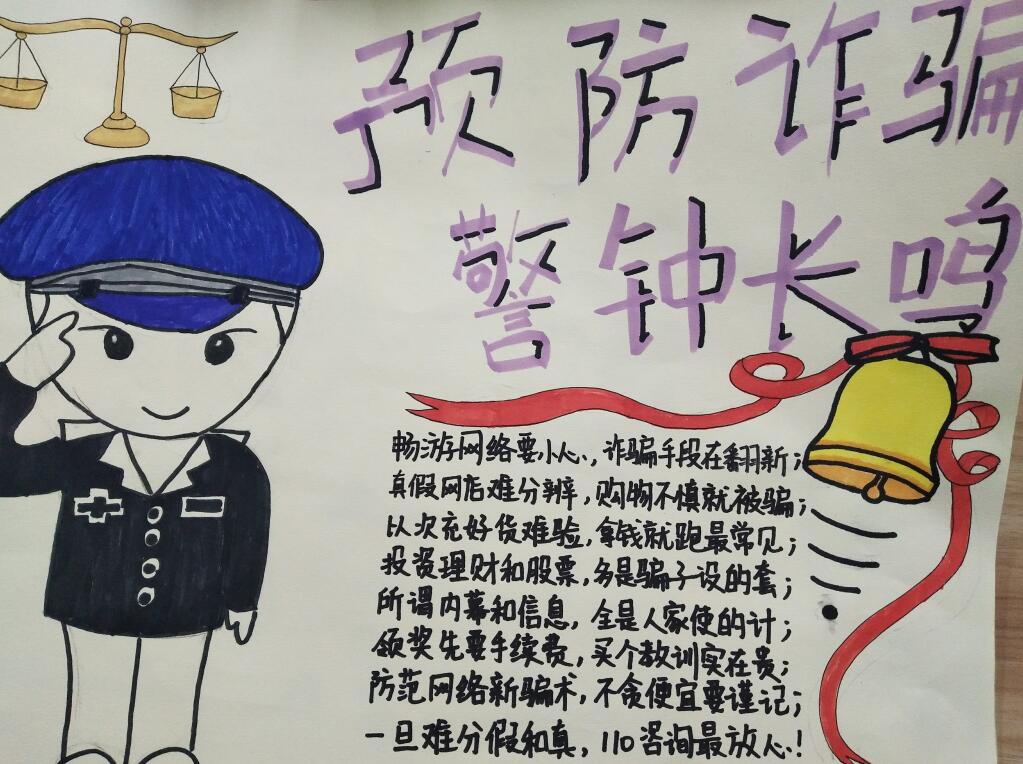 预防诈骗
警钟长鸣
畅游网络要小心,诈骗手段在翻新;
真假网店难分辨,购物不慎就被骗;
以次充好货难验,拿钱就跑最常见;
投资理财和股票,多是骗子设的套;
所谓内幕和信息,全是人家使的计;
领奖先要手续费,买个教训实在贵;
防范网络新骗术,不贪便宜要谨记;
一旦难分假和真,110咨询最放心!